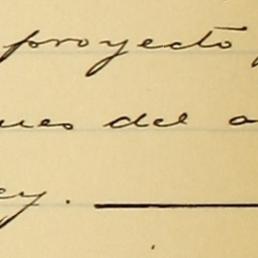 proyecto
ues del a
ey.